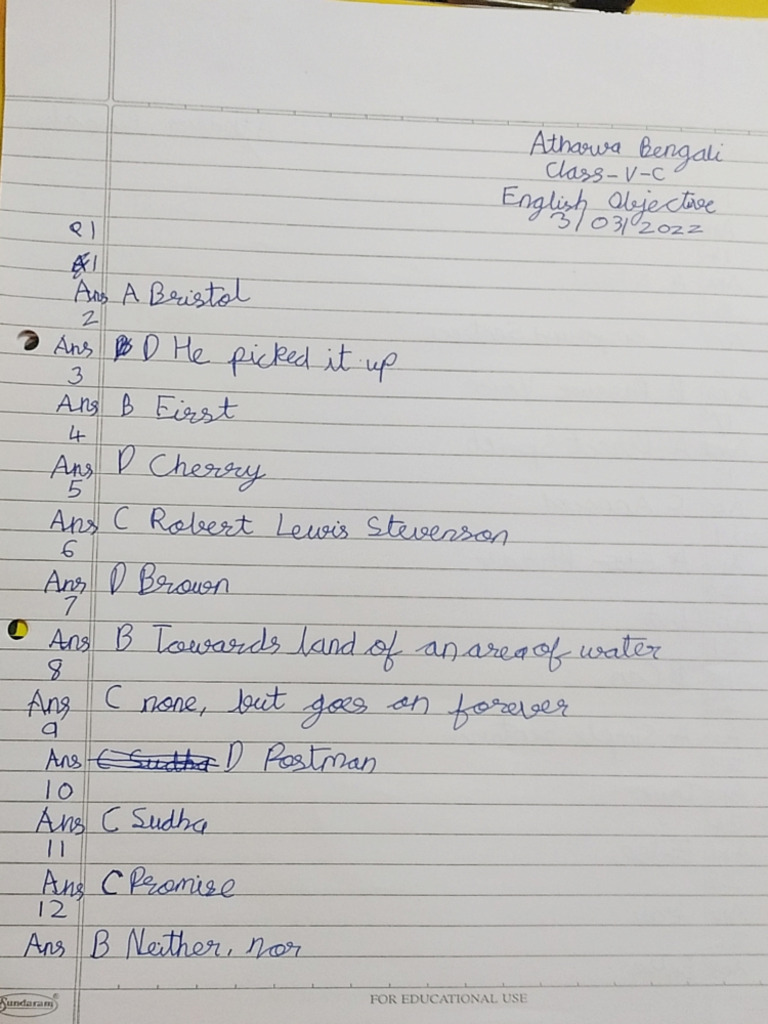 Atharva Bengali
Class-V-C
English Objective
3/03/2022
Q1
1
Ans A Bristol
2
Ans D He picked it up
3
Ans B First
4
Ans D Cherry
5
Ans C Robert Lewis Stevenson
6
Ans D Brown
7
Ans B Towards land of an area of water
8
Ans C none, but goes on forever
9
Ans C Sudha D Postman
10
Ans C Sudha
11
Ans C Promise
12
Ans B Neither, nor
Sundaram®
FOR EDUCATIONAL USE